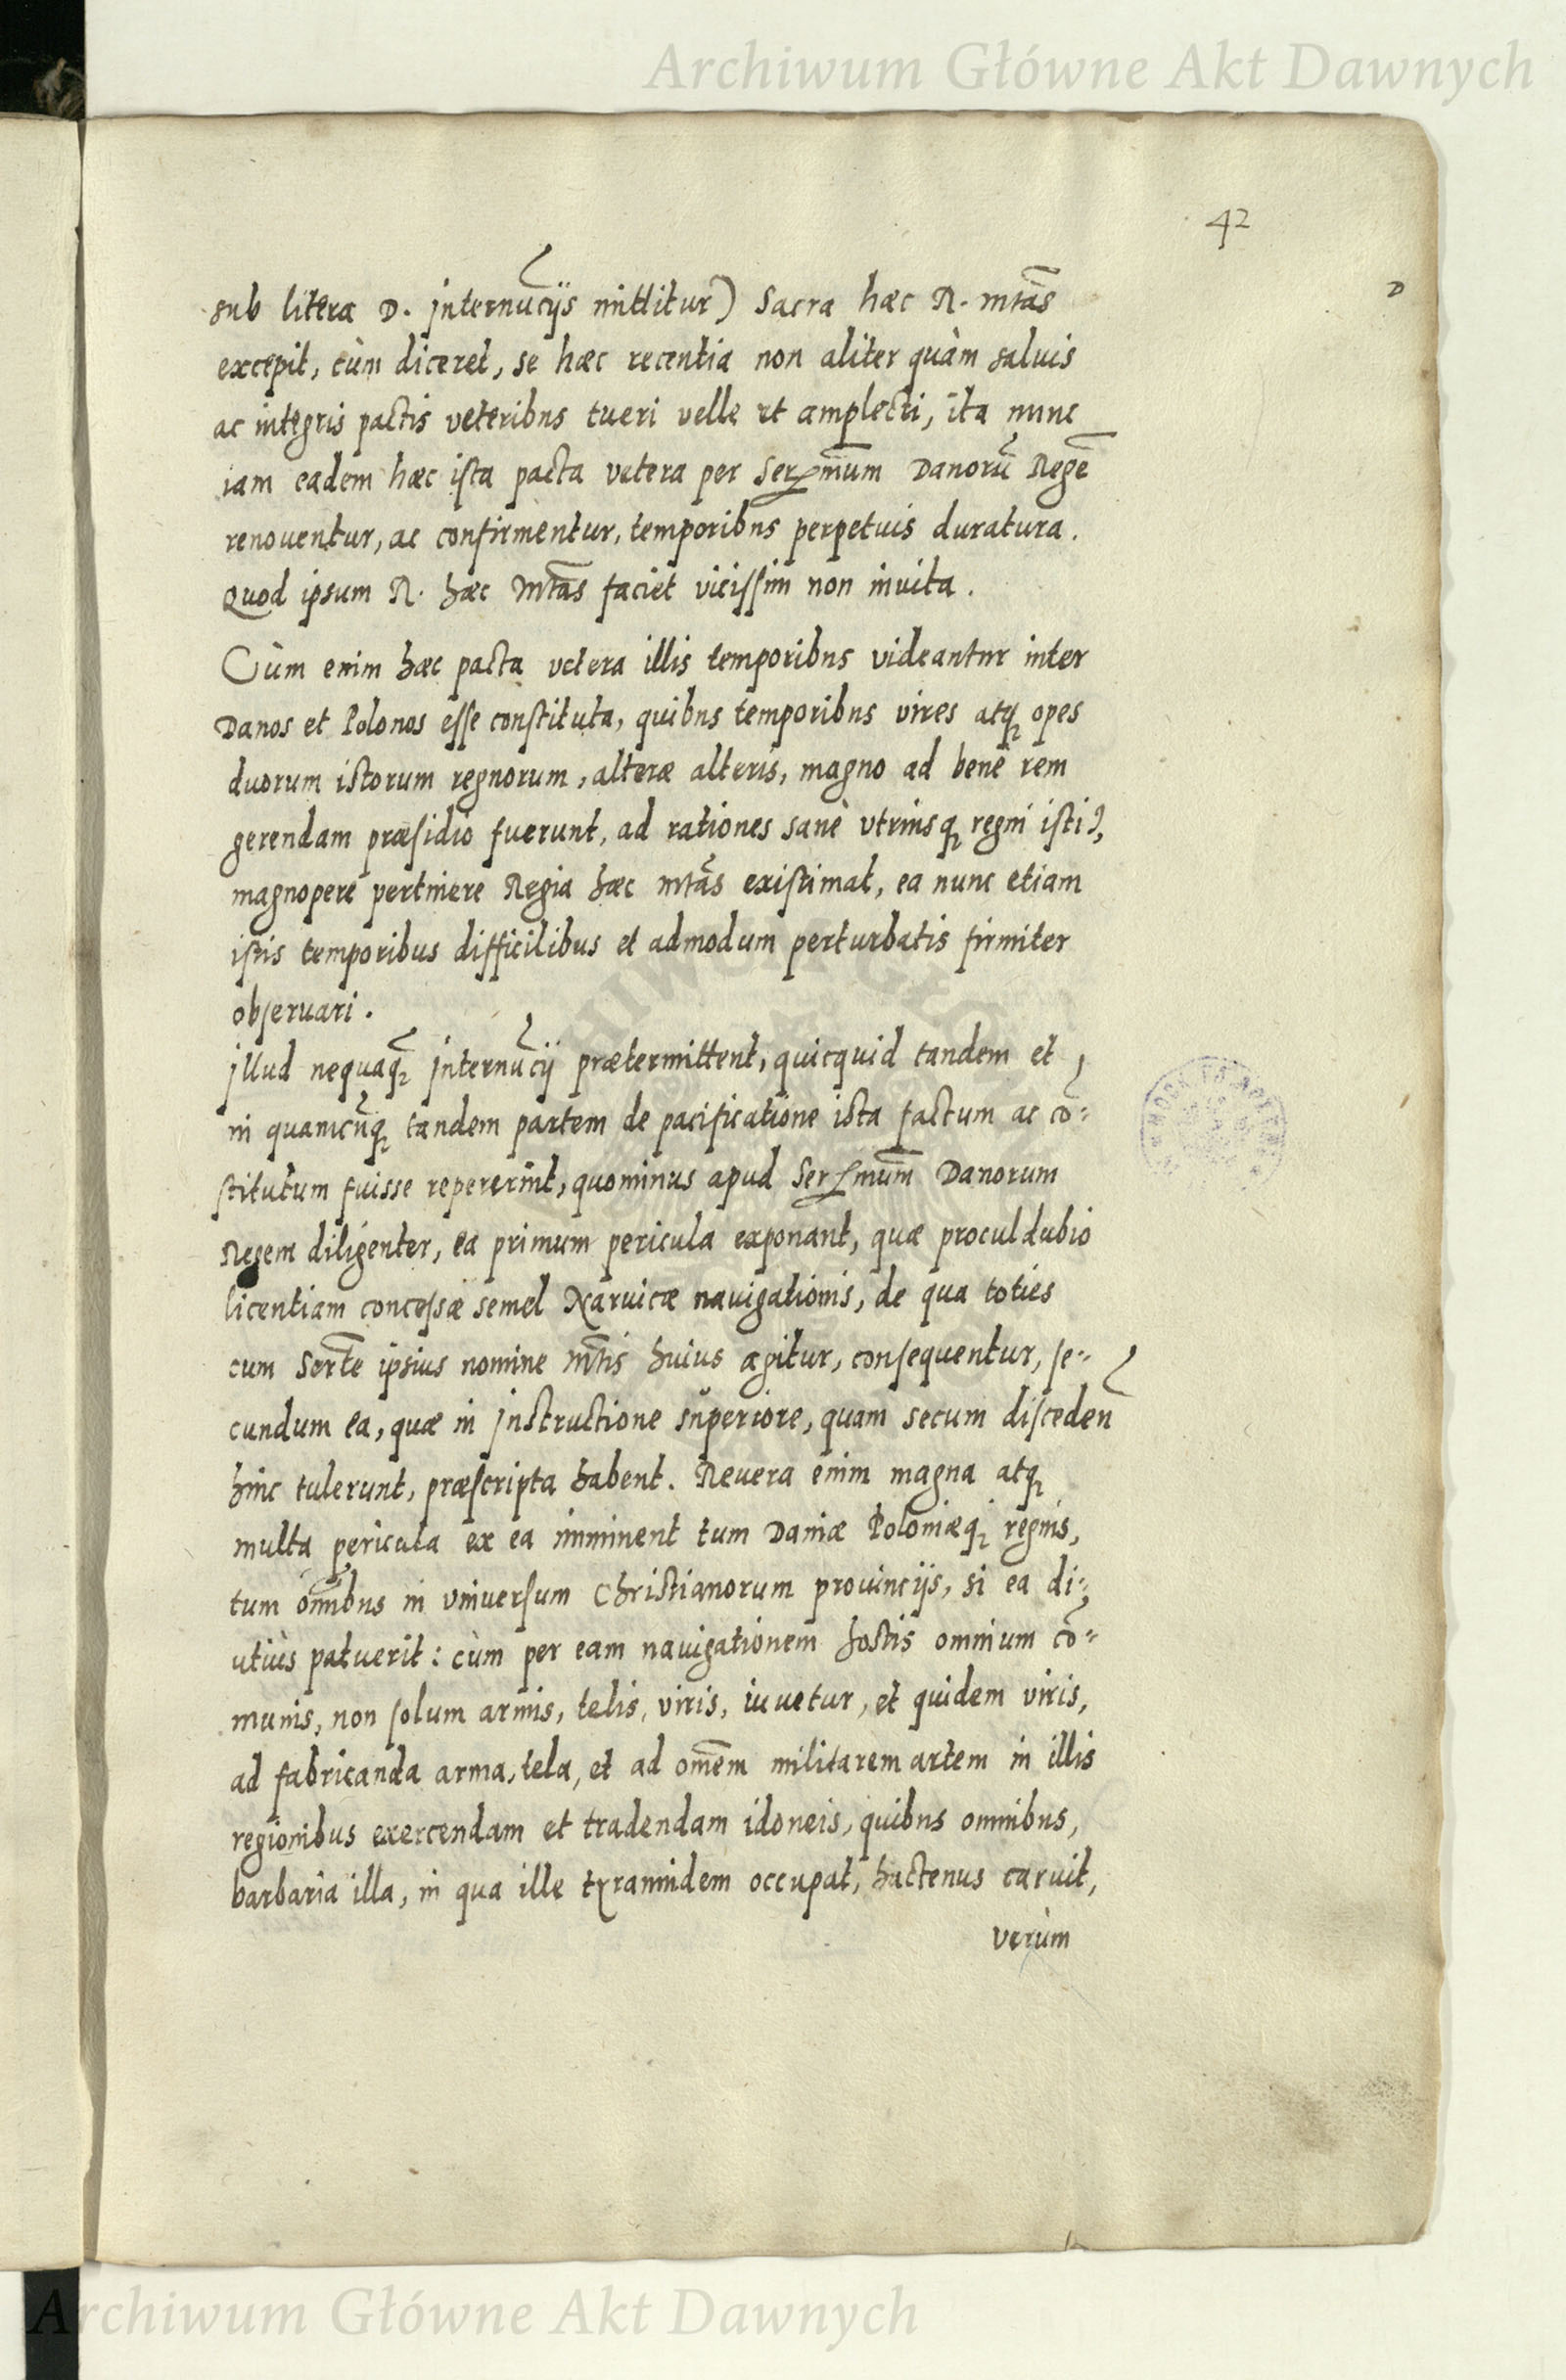 Archiwum Główne Akt Dawnych
42
D
sub litera D. jnternūcijs mittitur) Sacra hæc R. Mtās
excepit, cùm diceret, se hæc recentia non aliter quàm saluis
ac integris pactis veteribus tueri velle et amplecti, ita nunc
iam eadem hæc ista pacta vetera per Serᵐum Danorū Regē
renouentur, ac confirmentur, temporibus perpetuis duratura.
Quod ipsum R. hæc Mtās faciet vicissim non inuita.
Cùm enim hæc pacta vetera illis temporibus videantur inter
Danos et Polonos esse constituta, quibus temporibus vires atq; opes
duorum istorum regnorum, alteræ alteris, magno ad benè rem
gerendam præsidio fuerunt, ad rationes sanè vtriusq; regni isti9,
magnoperè pertinere Regia hæc Mtās existimat, ea nunc etiam
istis temporibus difficilibus et admodum perturbatis firmiter
obseruari.
jllud nequaq̃ jnternūcij prætermittent, quicquid tandem et,
in quamcūq; tandem partem de pacificatione ista factum ac cō=
stitutum fuisse repererint, quominus apud Serᵐum Danorum
Regem diligenter, ea primum pericula exponant, quæ proculdubio
licentiam concessæ semel Naruicæ nauigationis, de qua toties
cum Sertē ipsius nomine Mtis huius agitur, consequentur, se=
cundum ea, quæ in jnstructione superiore, quam secum disceden̄
hinc tulerunt, præscripta habent. Reuera enim magna atq;
multa pericula ex ea imminent tum Daniæ Poloniæq; regnis,
tum om̄ibus in vniuersum Christianorum prouincijs, si ea di=
utiùs patuerit: cùm per eam nauigationem hostis omnium cō=
munis, non solum armis, telis, viris, iuuetur, et quidem viris,
ad fabricanda arma, tela, et ad om̄em militarem artem in illis
regionibus exercendam et tradendam idoneis, quibus omnibus,
barbaria illa, in qua ille tyrannidem occupat, hactenus caruit,
verùm
Archiwum Główne Akt Dawnych